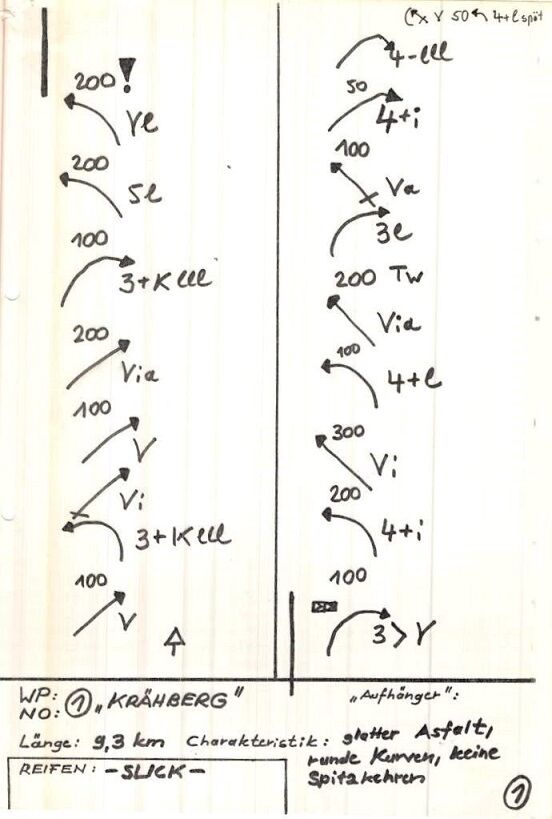 200 !
Vl
200
5l
100
3+K lll
200
Via
100
V
Vi
3+K lll
100
V
V 50 4+l spät
4-lll
50
4+i
100
Va
3l
200 Tw
Via
100
4+l
300
Vi
200
4+i
100
3>V
WP: NO: 1 „KRÄHBERG"
Länge: 9,3 km Charakteristik: glatter Asfalt,
runde Kurven, keine
Spitzkehren
„Aufhänger":
REIFEN: - SLICK -
1